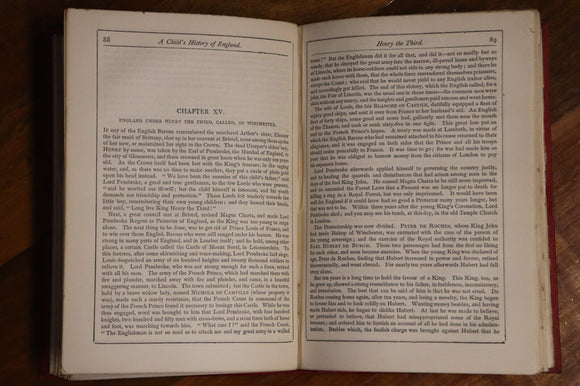 88
A Child's History of England.
CHAPTER XV.
ENGLAND UNDER HENRY THE THIRD, CALLED, OF WINCHESTER.
IF any of the English Barons remembered the murdered Arthur's sister, Eleanor
the fair maid of Brittany, shut up in her convent at Bristol, none among them spoke
of her now, or maintained her right to the Crown. The dead Usurper's eldest boy,
HENRY by name, was taken by the Earl of Pembroke, the Marshal of England, to
the city of Gloucester, and there crowned in great haste when he was only ten years
old. As the Crown itself had been lost with the King's treasure, in the raging
water, and, as there was no time to make another, they put a circle of plain gold
upon his head instead. "We have been the enemies of this child's father," said
Lord Pembroke, a good and true gentleman, to the few Lords who were present,
"and he merited our ill-will; but the child himself is innocent, and his youth
demands our friendship and protection." Those Lords felt tenderly towards the
little boy, remembering their own young children; and they bowed their heads,
and said, "Long live King Henry the Third!"
Next, a great council met at Bristol, revised Magna Charta, and made Lord
Pembroke Regent or Protector of England, as the King was too young to reign
alone. The next thing to be done, was to get rid of Prince Louis of France, and
to win over those English Barons who were still ranged under his banner. He was
strong in many parts of England, and in London itself; and he held, among other
places, a certain Castle called the Castle of Mount Sorel, in Leicestershire. To
this fortress, after some skirmishing and truce-making, Lord Pembroke laid siege.
Louis despatched an army of six hundred knights and twenty thousand soldiers to
relieve it. Lord Pembroke, who was not strong enough for such a force, retired
with all his men. The army of the French Prince, which had marched there with
fire and plunder, marched away with fire and plunder, and came, in a boastful
swaggering manner, to Lincoln. The town submitted; but the Castle in the town,
held by a brave widow lady, named NICHOLA DE CAMVILLE (whose property it
was), made such a sturdy resistance, that the French Count in command of the
army of the French Prince found it necessary to besiege this Castle. While he was
thus engaged, word was brought to him that Lord Pembroke, with four hundred
knights, two hundred and fifty men with cross-bows, and a stout force both of horse
and foot, was marching towards him. "What care I?" said the French Count.
"The Englishman is not so mad as to attack me and my great army in a walled
Henry the Third.
89
town!" But the Englishman did it for all that, and did it—not so madly but so
wisely, that he decoyed the great army into the narrow, ill-paved lanes and byways
of Lincoln, where its horse-soldiers could not ride in any strong body; and there he
made such havoc with them, that the whole force surrendered themselves prisoners,
except the Count; who said that he would never yield to any English traitor alive,
and accordingly got killed. The end of this victory, which the English called, for a
joke, the Fair of Lincoln, was the usual one in those times—the common men were
slain without any mercy, and the knights and gentlemen paid ransom and went home.
The wife of Louis, the fair BLANCHE OF CASTILE, dutifully equipped a fleet of
eighty good ships, and sent it over from France to her husband's aid. An English
fleet of forty ships, some good and some bad, gallantly met them near the mouth
of the Thames, and took or sunk sixty-five in one fight. This great loss put an
end to the French Prince's hopes. A treaty was made at Lambeth, in virtue of
which the English Barons who had remained attached to his cause returned to their
allegiance, and it was engaged on both sides that the Prince and all his troops
should retire peacefully to France. It was time to go; for war had made him so
poor that he was obliged to borrow money from the citizens of London to pay
his expenses home.
Lord Pembroke afterwards applied himself to governing the country justly,
and to healing the quarrels and disturbances that had arisen among men in the
days of the bad King John. He caused Magna Charta to be still more improved,
and so amended the Forest Laws that a Peasant was no longer put to death for
killing a stag in a Royal Forest, but was only imprisoned. It would have been
well for England if it could have had so good a Protector many years longer, but
that was not to be. Within three years after the young King's Coronation, Lord
Pembroke died; and you may see his tomb, at this day, in the old Temple Church
in London.
The Protectorship was now divided. PETER DE ROCHES, whom King John
had made Bishop of Winchester, was entrusted with the care of the person of
the young sovereign; and the exercise of the Royal authority was confided to
EARL HUBERT DE BURGH. These two personages had from the first no liking
for each other, and soon became enemies. When the young King was declared of
age, Peter de Roches, finding that Hubert increased in power and favour, retired
discontentedly, and went abroad. For nearly ten years afterwards Hubert had full
sway alone.
But ten years is a long time to hold the favour of a King. This King, too, as
he grew up, showed a strong resemblance to his father, in feebleness, inconsistency,
and irresolution. The best that can be said of him is that he was not cruel. De
Roches coming home again, after ten years, and being a novelty, the King began
to favour him and to look coldly on Hubert. Wanting money besides, and having
made Hubert rich, he began to dislike Hubert. At last he was made to believe, or
pretended to believe, that Hubert had misappropriated some of the Royal
treasure; and ordered him to furnish an account of all he had done in his adminis-
tration. Besides which, the foolish charge was brought against Hubert that he